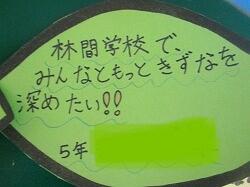 林間学校で、
みんなともっときずなを
深めたい!!
5年